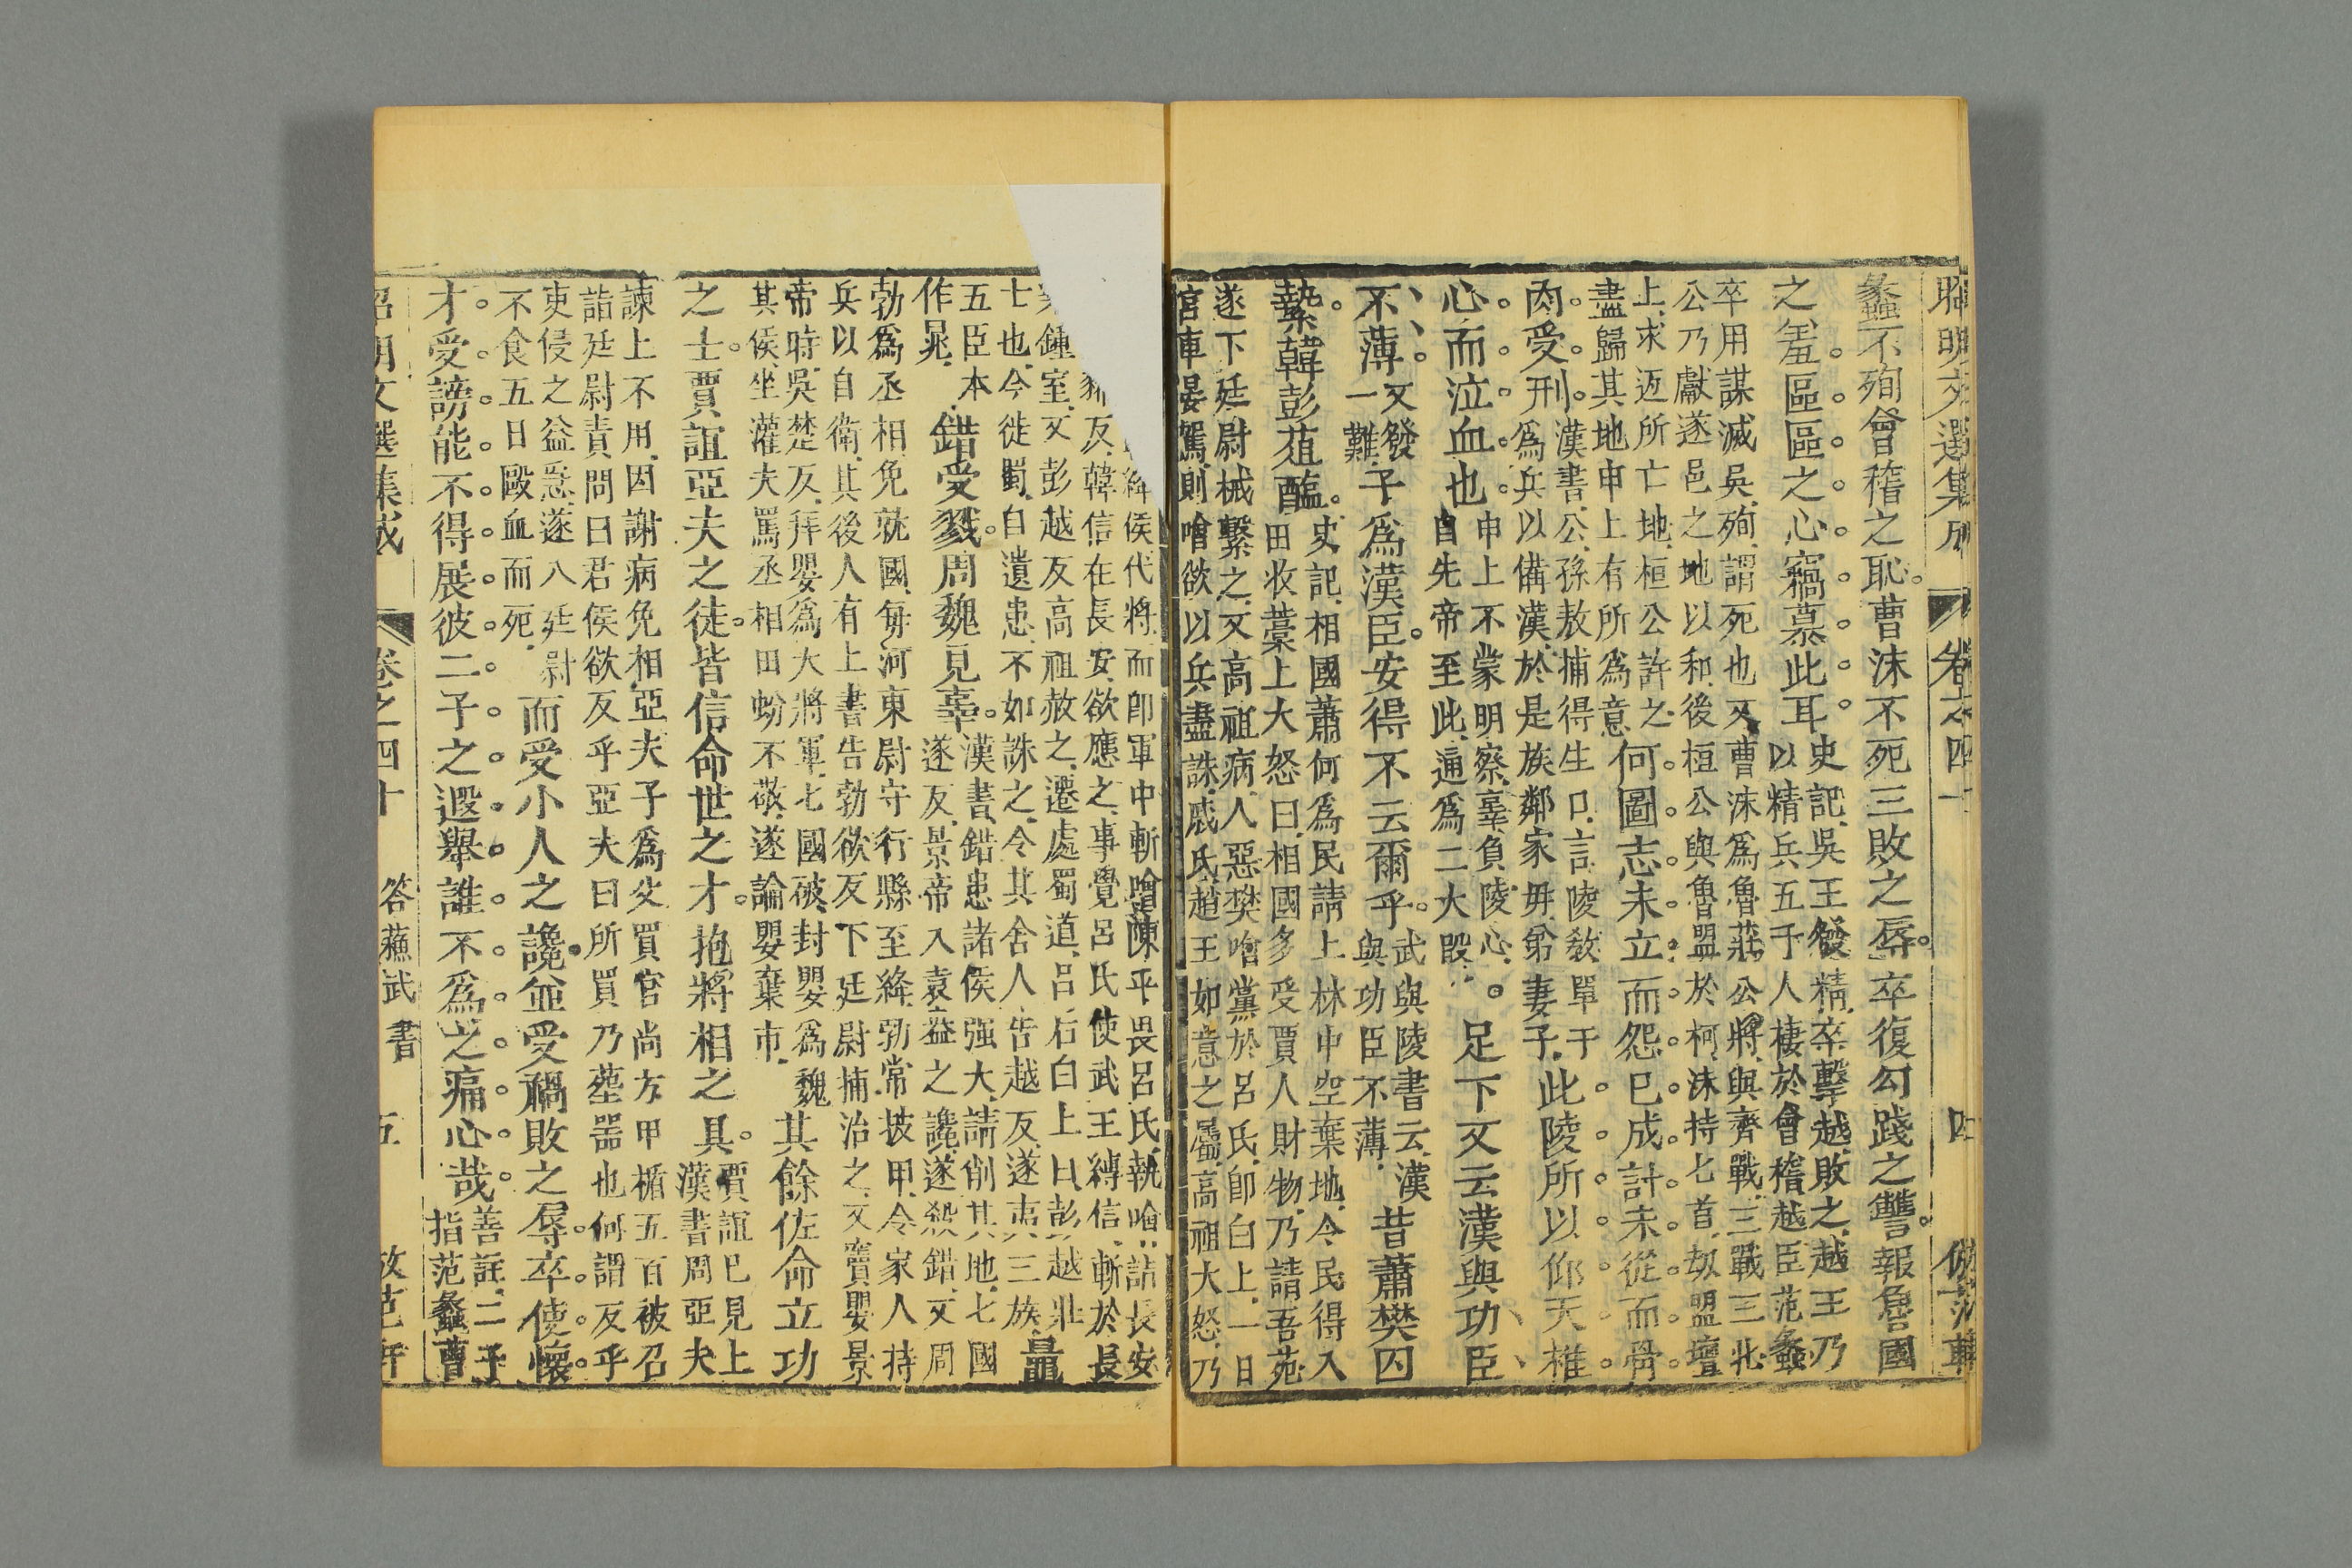 昭明文選集成 卷之四十 四 倣范軒
蠡不殉會稽之恥曹沫不死三敗之辱卒復勾踐之讐報魯國
之羞區區之心竊慕此耳史記吳王發精卒擊越敗之越王乃
以精兵五千人棲於會稽越臣范蠡
卒用謀滅吳殉謂死也又曹沫爲魯莊公將與齊戰三戰三北
公乃獻遂邑之地以和後桓公與魯盟於柯沫持匕首刼盟壇
上求返所亡地桓公許之
盡歸其地申上有所爲意何圖志未立而怨已成計未從而骨
肉受刑漢書公孫敖捕得生口言陵敎單于
爲兵以備漢於是族鄰家毋弟妻子此陵所以仰天椎
心而泣血也申上不蒙明察辜負陵心
自先帝至此遍爲二大段足下又云漢與功臣
不薄又發
一難子爲漢臣安得不云爾乎武與陵書云漢
與功臣不薄昔蕭樊囚
縶韓彭葅醢史記相國蕭何爲民請上林中空棄地令民得入
田收藁上大怒曰相國多受賈人財物乃請吾苑
遂下廷尉械繫之又高祖病人惡樊噲黨於呂氏卽白上一日
宫車晏駕則噲欲以兵盡誅戚氏趙王如意之屬高祖大怒乃
絳侯代將而卽軍中斬噲陳平畏呂氏執噲詣長安
豨反韓信在長安欲應之事覺呂氏使武王縛信斬於長
鍾室又彭越反高祖赦之遷處蜀道呂后白上曰彭越壯
士也今徙蜀自遺患不如誅之令其舍人告越反遂夷三族鼂
五臣本
作晁錯受戮周魏見辜漢書錯患諸侯强大請削其地七國
遂反景帝入袁盎之讒遂殺錯又周
勃爲丞相免就國每河東尉守行縣至絳勃常披甲令家人持
兵以自衛其後人有上書告勃欲反下廷尉捕治之又竇嬰景
帝時吳楚反拜嬰爲大將軍七國破封嬰爲魏
其侯坐灌夫罵丞相田蚡不敬遂論嬰棄市其餘佐命立功
之士賈誼亞夫之徒皆信命世之才抱將相之具賈誼已見上
漢書周亞夫
諫上不用因謝病免相亞夫子爲父買官尚方甲楯五百被召
詣廷尉責問曰君侯欲反乎亞夫曰所買乃塟噐也何謂反乎
吏侵之益急遂入廷尉
不食五日毆血而死而受小人之讒並受禍敗之辱卒使懷
才受謗能不得展彼二子之遐舉誰不爲之痛心哉善註二子
指范蠡曹
昭明文選集成 卷之四十 答蘇武書 五 倣范軒